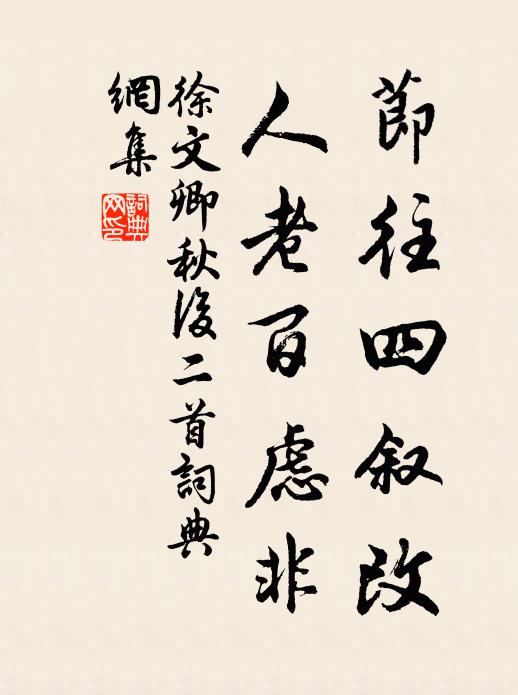 莭往四叙改
人老百慮非
徐文卿秋後二首詞典
網集
詞典
网印